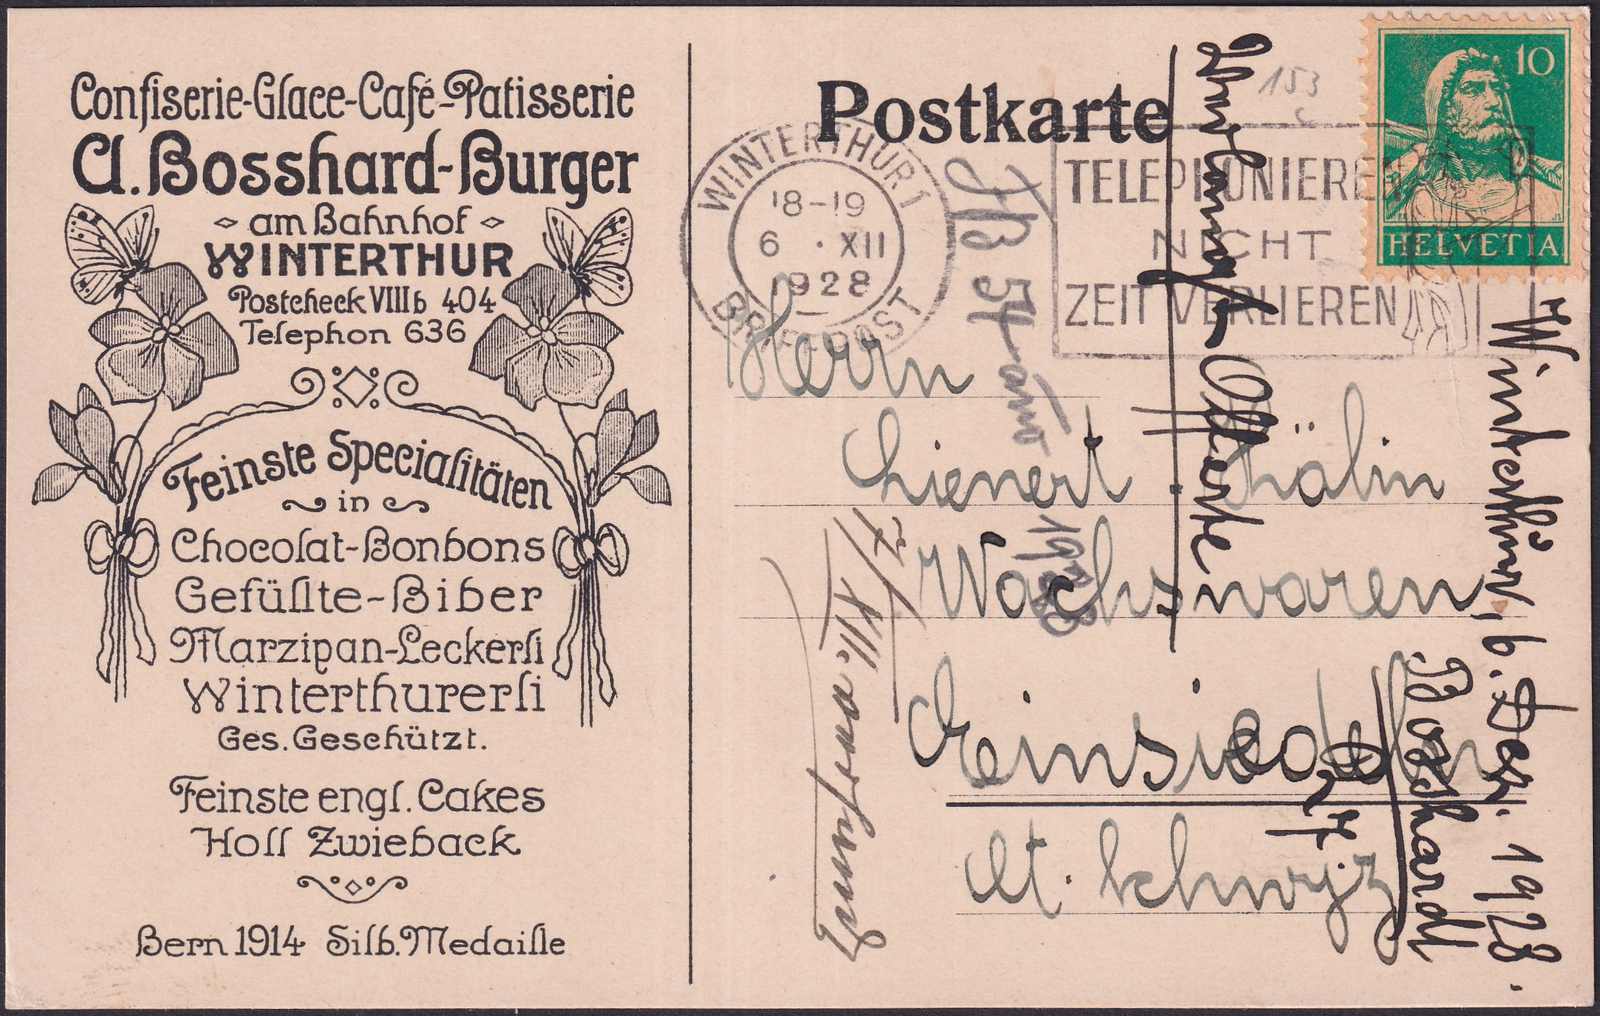 Confiserie-Glace-Café-Patisserie
A. Bosshard-Burger
am Bahnhof
WINTERTHUR
Postcheck VIIIb 404
Telephon 636
Feinste Specialitäten
in
Chocolat-Bonbons
Gefüllte-Biber
Marzipan-Leckerli
Winterthurerli
Ges. Geschützt.
Feinste engl. Cakes
Holl Zwieback
Bern 1914 Silb. Medaille
Postkarte
153
10
HELVETIA
WINTERTHUR 1
18-19
6 · XII
1928
BRIEFPOST
TELEPHONIEREN
NICHT
ZEIT VERLIEREN
Herrn
Lienert Kälin
Wachswaren
Einsiedeln
Kt. Schwyz
Offerte
1928
7/XII.
Winterthur, 6. Dez. 1928.
Bosshardt